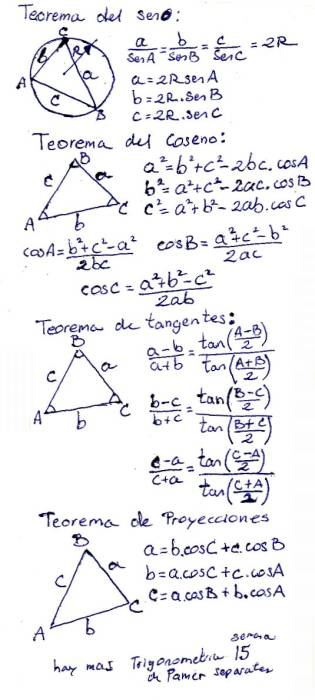 Teorema del seno:
C
b R a
A c B
a/senA = b/senB = c/senC = 2R
a = 2R senA
b = 2R.senB
c = 2R.senC
Teorema del Coseno:
B
c a
A b C
a² = b² + c² - 2bc.cosA
b² = a² + c² - 2ac.cosB
c² = a² + b² - 2ab.cosC
cosA = (b² + c² - a²)/2bc cosB = (a² + c² - b²)/2ac
cosC = (a² + b² - c²)/2ab
Teorema de tangentes:
B
c a
A b C
(a-b)/(a+b) = tan((A-B)/2)/tan((A+B)/2)
(b-c)/(b+c) = tan((B-C)/2)/tan((B+C)/2)
(c-a)/(c+a) = tan((C-A)/2)/tan((C+A)/2)
Teorema de Proyecciones
B
c a
A b C
a = b.cosC + c.cosB
b = a.cosC + c.cosA
c = a.cosB + b.cosA
hay mas Trigonometria 15
de Pamer